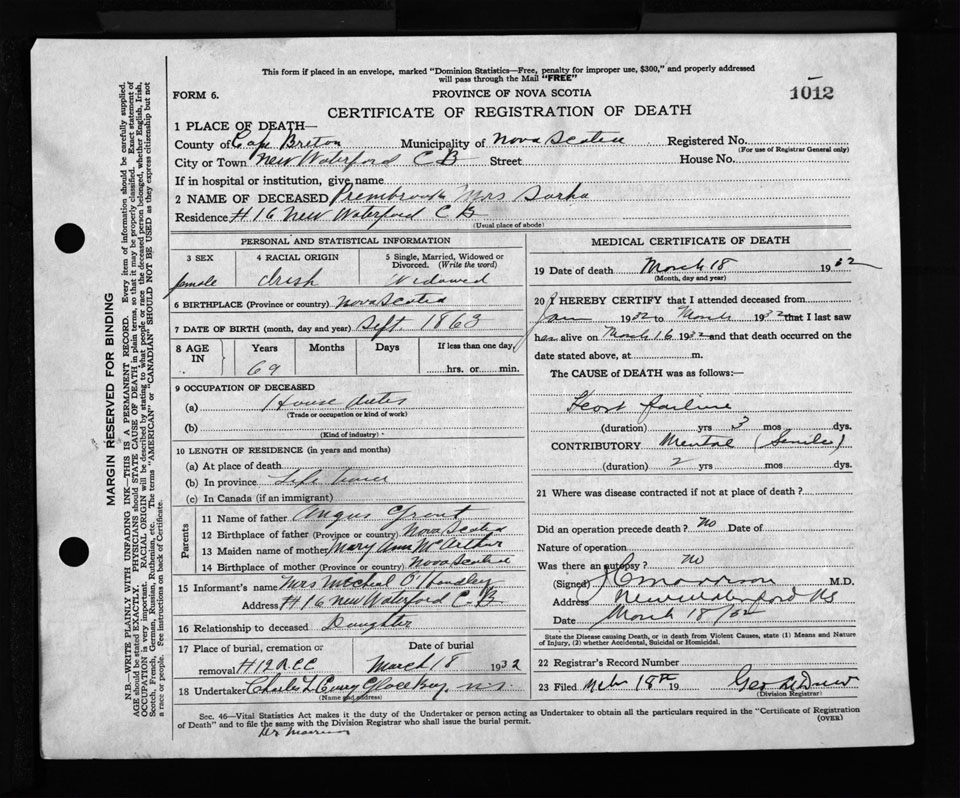 This form if placed in an envelope, marked "Dominion Statistics—Free, penalty for improper use, $300," and properly addressed
will pass through the Mail "FREE"
FORM 6.
PROVINCE OF NOVA SCOTIA
1012
CERTIFICATE OF REGISTRATION OF DEATH
1 PLACE OF DEATH—
County of Cape Breton Municipality of Nova Scotia Registered No.
(For use of Registrar General only)
City or Town New Waterford C B Street House No.
If in hospital or institution, give name
2 NAME OF DECEASED Mrs
Residence #16 New Waterford C B
(Usual place of abode)
PERSONAL AND STATISTICAL INFORMATION
3 SEX 4 RACIAL ORIGIN 5 Single, Married, Widowed or Divorced. (Write the word)
female Irish Widowed
6 BIRTHPLACE (Province or country) Nova Scotia
7 DATE OF BIRTH (month, day and year) Sept 1863
8 AGE IN Years Months Days If less than one day,
69 hrs. or min.
9 OCCUPATION OF DECEASED
(a) House duties
(Trade or occupation or kind of work)
(b)
(Kind of industry)
10 LENGTH OF RESIDENCE (in years and months)
(a) At place of death
(b) In province Life
(c) In Canada (if an immigrant)
Parents
11 Name of father Angus Grant
12 Birthplace of father (Province or country) Nova Scotia
13 Maiden name of mother Mary Ann McArthur
14 Birthplace of mother (Province or country) Nova Scotia
15 Informant's name Mrs Micheal O'Handley
Address #16 New Waterford C.B
16 Relationship to deceased Daughter
17 Place of burial, cremation or removal Date of burial
March 18 1932
18 Undertaker Charles L Curry Glace Bay N.S.
(Name and address)
MEDICAL CERTIFICATE OF DEATH
19 Date of death March 18 1932
(Month, day and year)
20 I HEREBY CERTIFY that I attended deceased from
Jan 1932 to March 1932 that I last saw
alive on March 16 1932 and that death occurred on the
date stated above, at m.
The CAUSE of DEATH was as follows:—
Heart failure
(duration) yrs 3 mos dys.
CONTRIBUTORY Mental (Senile)
(duration) 2 yrs mos dys.
21 Where was disease contracted if not at place of death?
Did an operation precede death? No Date of
Nature of operation
Was there an autopsy? No
(Signed) M.D.
Address New Waterford NS
Date March 18/32
State the Disease causing Death, or in death from Violent Causes, state (1) Means and Nature
of Injury, (2) whether Accidental, Suicidal or Homicidal.
22 Registrar's Record Number
23 Filed 18th 19 Geo
(Division Registrar)
Sec. 46—Vital Statistics Act makes it the duty of the Undertaker or person acting as Undertaker to obtain all the particulars required in the "Certificate of Registration
of Death" and to file the same with the Division Registrar who shall issue the burial permit.
(OVER)
MARGIN RESERVED FOR BINDING
N.B.—WRITE PLAINLY WITH UNFADING INK—THIS IS A PERMANENT RECORD. Every item of information should be carefully supplied.
AGE should be stated EXACTLY. PHYSICIANS should STATE CAUSE OF DEATH in plain terms, so that it may be properly classified. Exact statement of
OCCUPATION is very important. RACIAL ORIGIN will be described by stating to what people or race the deceased person belonged, whether English, Irish,
Scotch, French, German, Russian, Ruthenian, etc. The terms "AMERICAN" or "CANADIAN" SHOULD NOT BE USED as they express citizenship but not
a race or people. See instructions on back of Certificate.